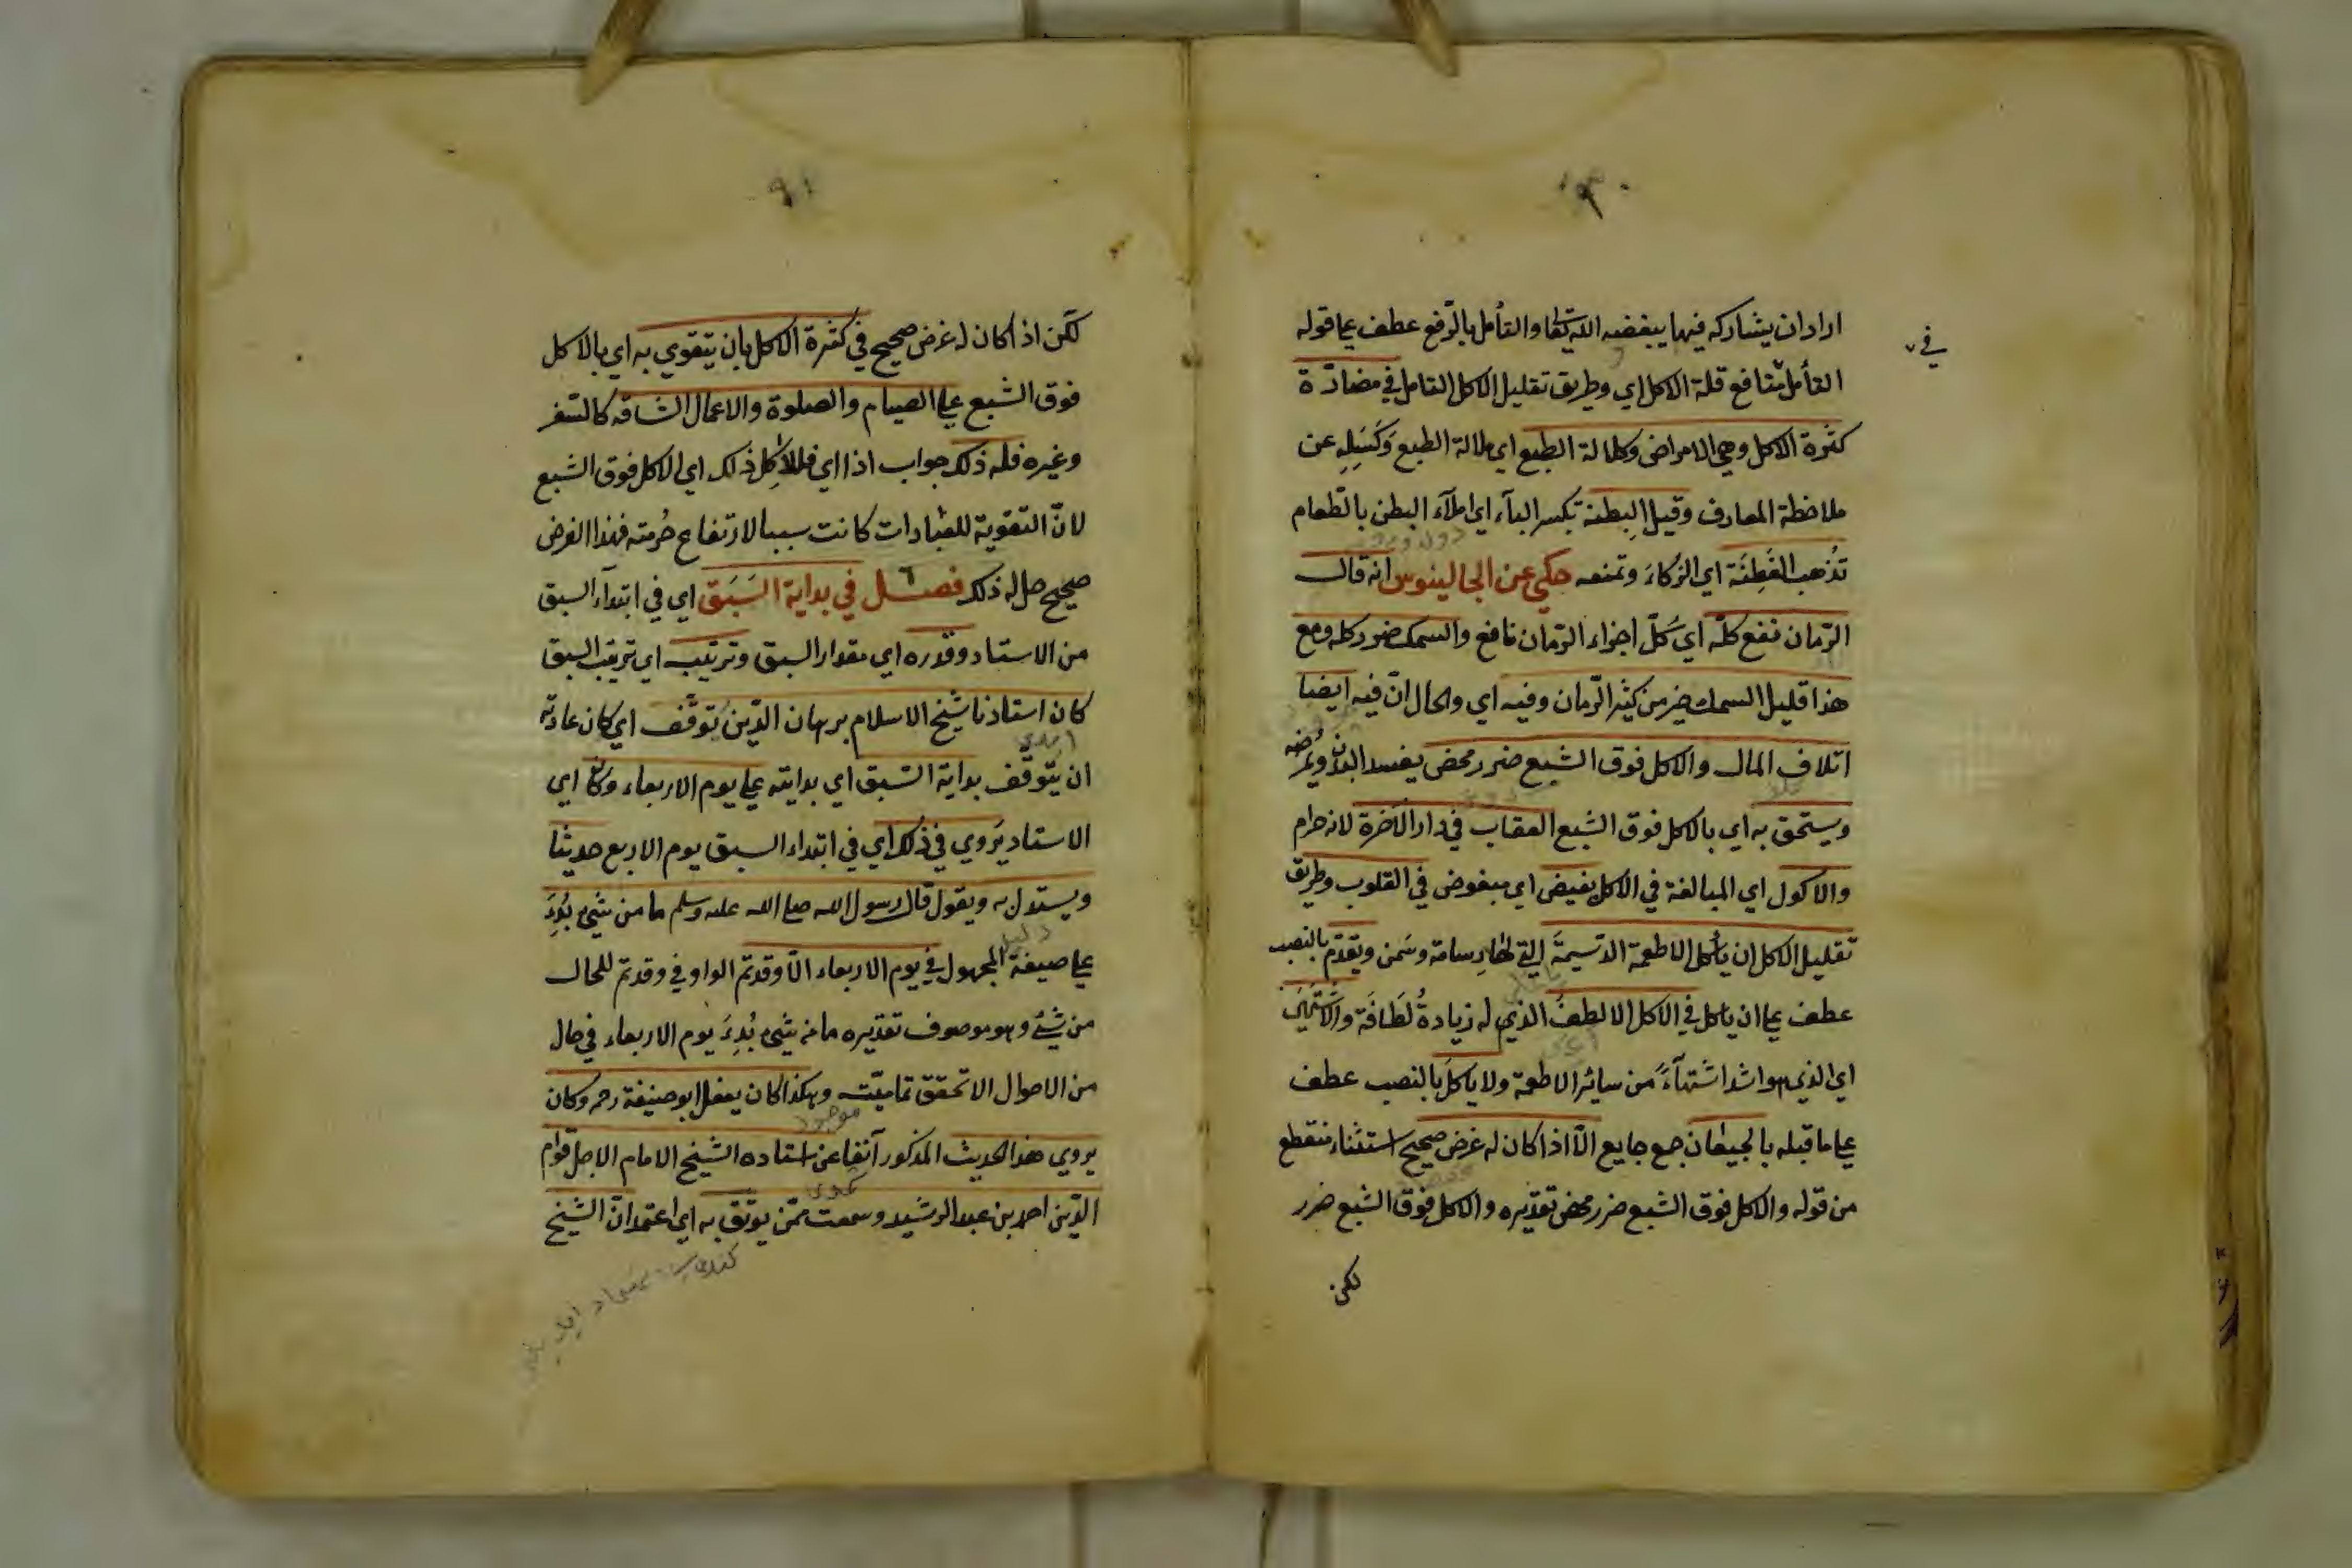 اراد ان يشاركه فيها يبغضه الله تعا والتأمل بالرّفع عطف على قوله
في
التأمل منافع قلة الاكل اي وطريق تقليل الاكل التامل في مضارّة
كثرة الاكل وهي الامراض وكلالة الطبع اي ملالة الطبع وَكَسَلِهِ عن
ملاحظة المعارف وقيل البِطنة بكسر الباء اي املآء البطن بالطّعام
تُذهب الفَطِنَة اي الذكاءَ وتمنعه حكي عن الجالينوس انه قال
الرّمان نفع كلّه اي كلّ اجزاء الرّمان نافع والسمك ضرر كله ومع
هذا قليل السمك خير من كثير الرّمان وفيه اي والحال انّ فيه ايضا
اتلاف المال والاكل فوق الشبع ضرر محض يفسد البدن ويُمرضه
ويستحق به اي بالاكل فوق الشبع العقاب في دار الآخرة لانه حرام
والاكول اي المبالغة في الاكل بغيض اي مبغوض في القلوب وطريق
تقليل الاكل ان يأكل الاطعمة الدّسيمةَ التي لها دسامة وسَمن ويقدّم بالنصب
عطف على ان يأكل في الاكل الالطفُ الذي له زيادةُ لَطَافَة والاشتهى
اي الذي هو اشدّ اشتهآءً من سائر الاطعمة ولا يأكلَ بالنصب عطف
على ما قبله بالجيعان جمع جايع الّا اذا كان له غرض صحيح استثناء منقطع
من قوله والاكل فوق الشبع ضرر محض تقديره والاكل فوق الشبع ضرر
لكن
٩١
لكن اذا كان له غرض صحيح في كثرة الاكل بان يتقوي به اي بالاكل
فوق الشبع على الصيام والصلوة والاعمال الشاقه كالسّفر
وغيره فله ذلك جواب اذا اي فللآكل ذلك اي الاكل فوق الشبع
لانّ التقوية للعبادات كانت سببا لارتفاع حُرمته فهذا الغرض
صحيح حل له ذلك فصل في بداية السَّبَق اي في ابتداء السبق
من الاستاد وقدره اي مقدار السبق وترتيبه اي ترتيب السبق
كان استاذنا شيخ الاسلام برهان الدّين تَوقَّف اي كان عادته
ان يتوقّف بداية السّبق اي بدايته على يوم الاربعاء وكان اي
الاستاد يَروي في ذلك اي في ابتداء السبق يوم الاربع حديثا
ويستدل به ويقول قال رسول الله صلى الله عليه وسلم ما من شئ بُدِئَ
على صيغة المجهول في يوم الاربعاء الّا وقد تمّ الواو في وقد تمّ للحال
من شئ وهو موصوف تقديره ما من شئ بُدِئَ يوم الاربعاء في حال
من الاحوال الا تحقق تماميّته وهكذا كان يفعل ابو حنيفة رحه وكان
يروي هذا الحديث المذكور آنفا عن استاده الشيخ الامام الاجل قوام
الدّين احمد بن عبد الرشيد وسمعت ممّن يوثق به اي اعتمد انّ الشيخ